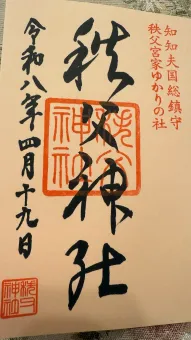 知知夫国総鎮守
秩父宮家ゆかりの社
秩父神社
令和八年四月十九日
秩父神社